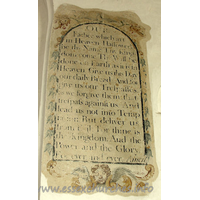 Our
Father which art
in Heaven Hallowed
be thy Name Thy King
dom come Thy Will be
done on Earth as it is in
Heaven Give us this Day
our daily Bread And for
give us our Trespasses
as we forgive them that
trespass against us And
lead us not into Temp
tation But deliver us
from evil For thine is
the Kingdom And the
Power and the Glory
for ever and ever Amen